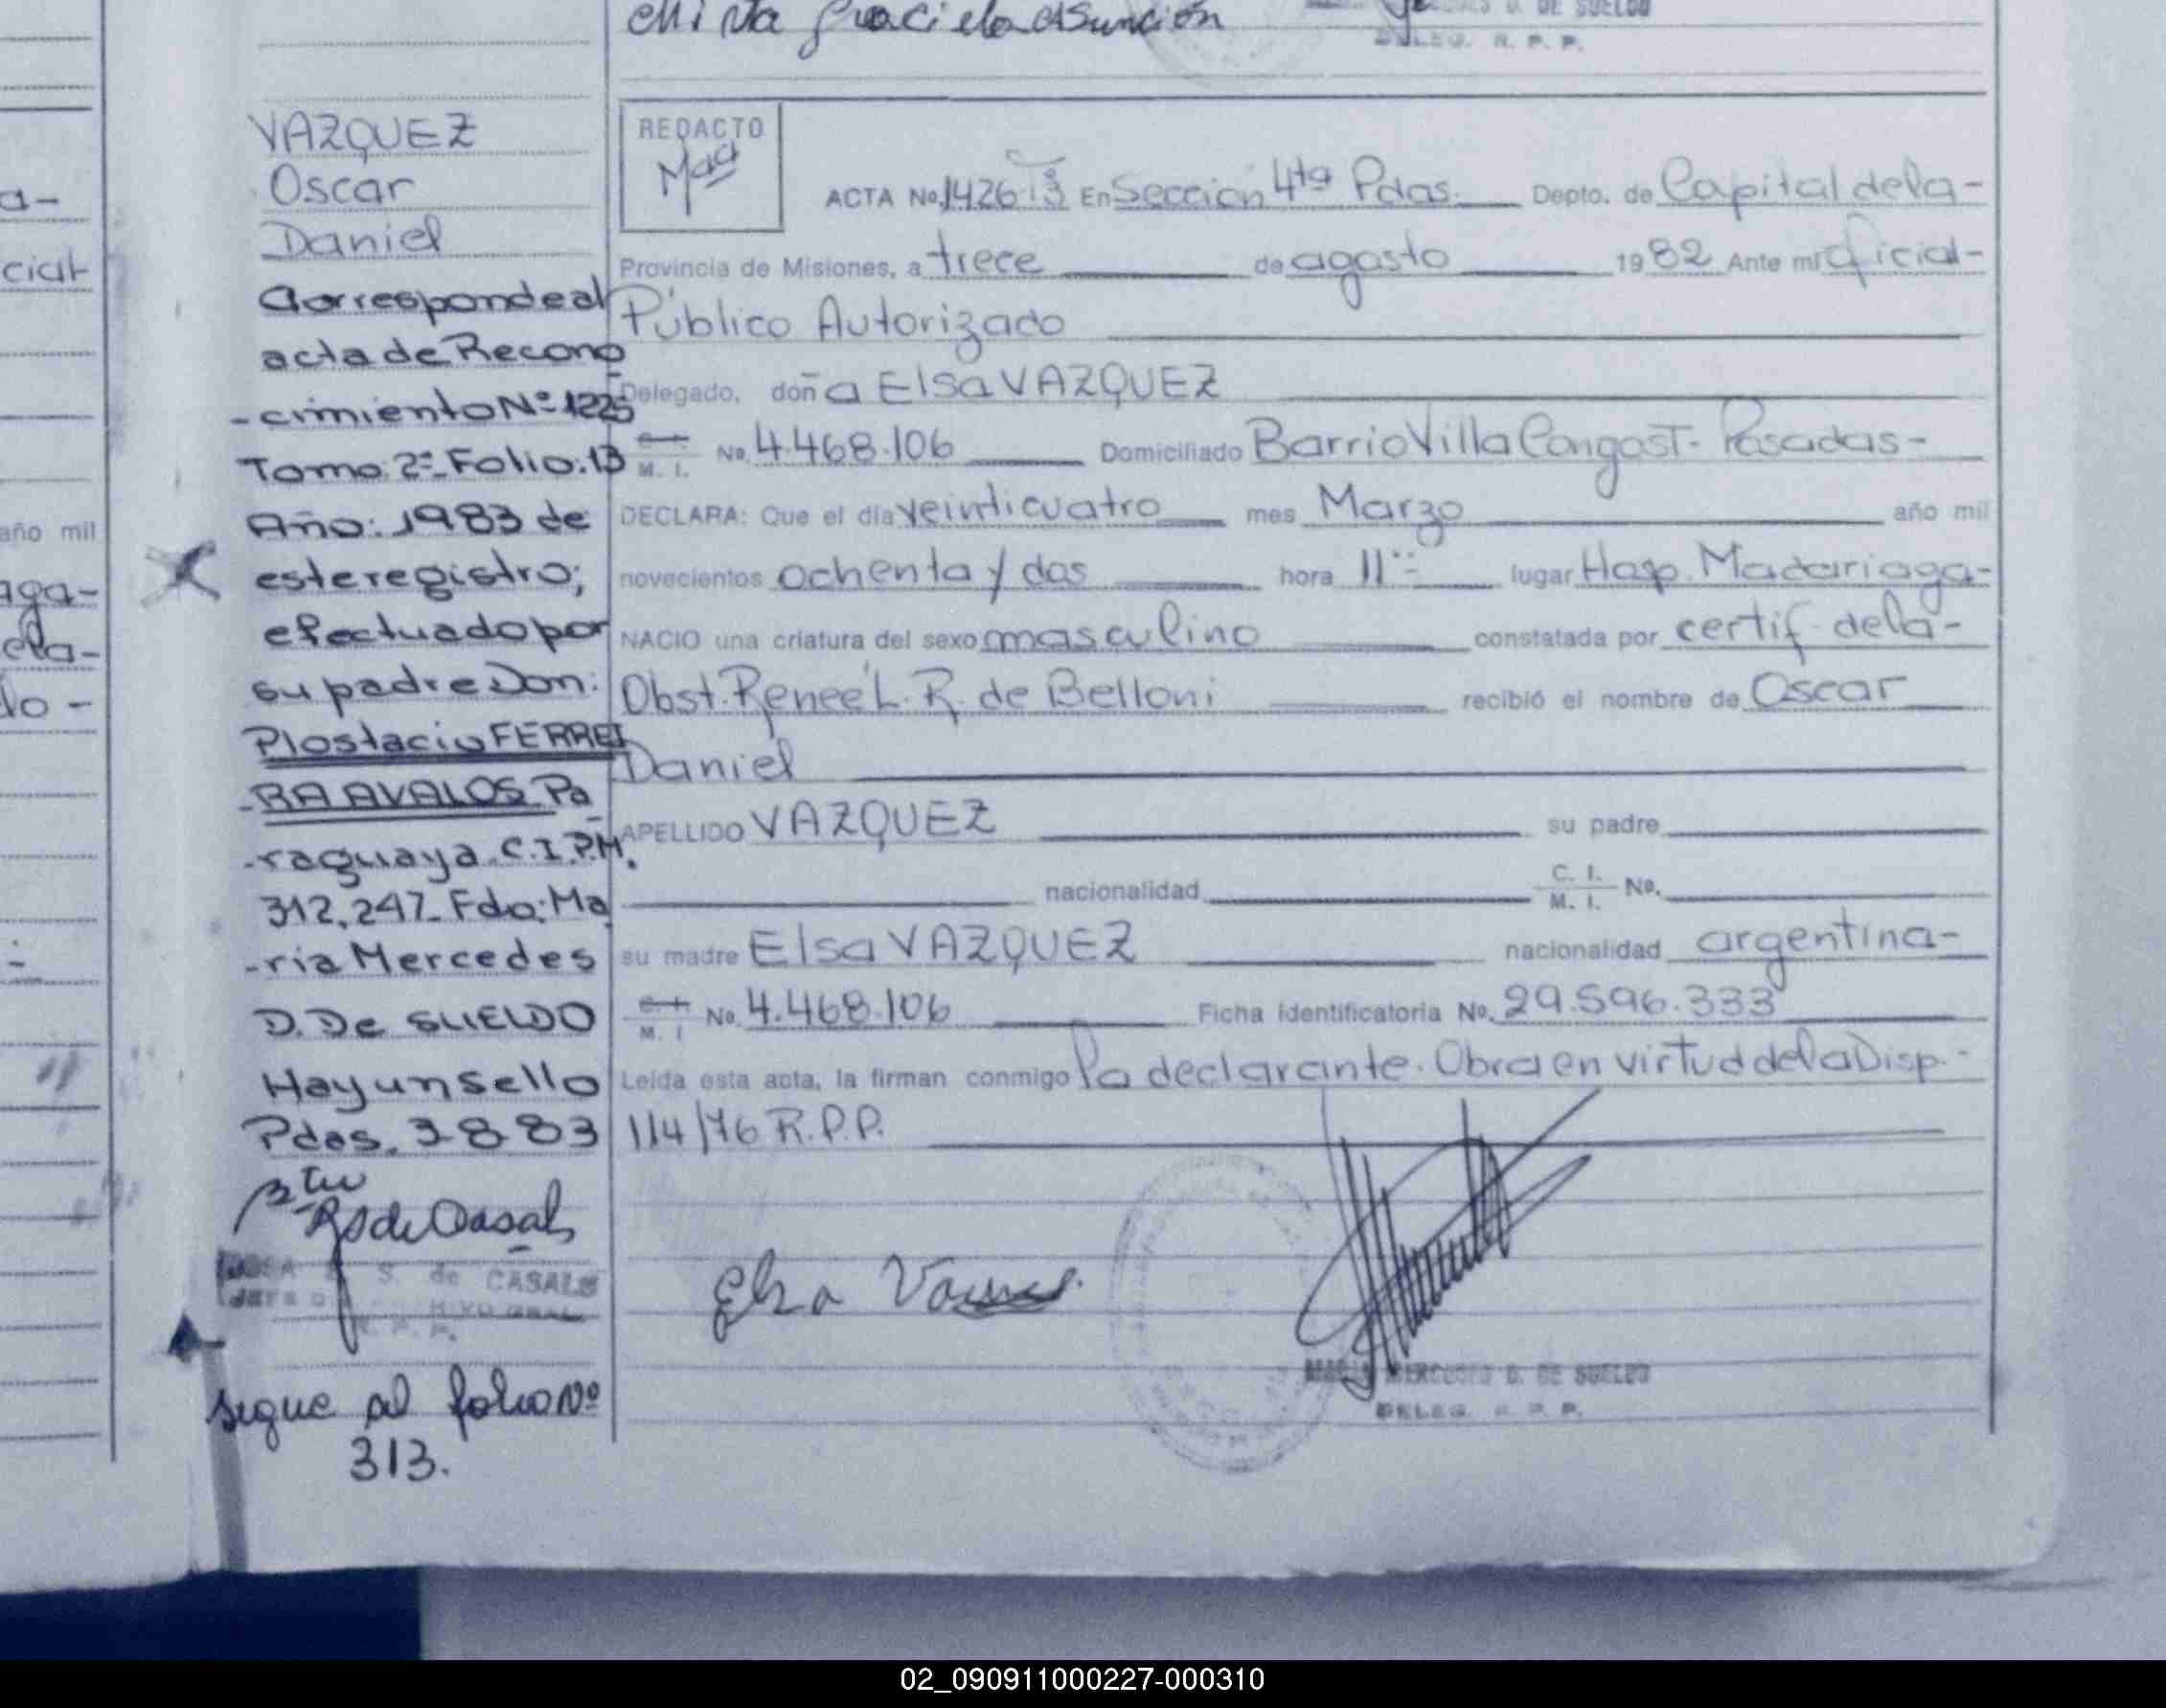 Graciela Asunción
DE SUELDO
DELEG. R. P. P.
a-
cial-
año mil
aga-
ela-
lo -
VAZQUEZ
Oscar
Daniel
Corresponde al
acta de Recono
-cimiento Nº 1225
Tomo: 2º Folio: 13
Año: 1983 de
este registro;
efectuado por
su padre Don:
Plostacio FERREI
-RA AVALOS Pa
-raguaya C.I.P.M.
312.247_ Fdo: Ma
-ria Mercedes
D. De SUELDO
Hay un sello
Pdas. 3-8-83
RS de Casals
ROSA S. de CASALS
R. P. P.
sigue al folio Nº
313.
REDACTO
ACTA No. 1426 T3 En Sección 4ta Pdas. Depto. de Capital de la-
Provincia de Misiones, a trece de agosto 1982 Ante mi Oficial-
Público Autorizado
Delegado, doña Elsa VAZQUEZ
C. I. M. I. No. 4.468.106 Domiciliado Barrio Villa Congost- Posadas-
DECLARA: Que el día veinticuatro mes Marzo año mil
novecientos ochenta y dos hora 11 lugar Hosp. Madariaga-
NACIO una criatura del sexo masculino constatada por certif. de la-
Obst. Renee L. R. de Belloni recibió el nombre de Oscar
Daniel
APELLIDO VAZQUEZ su padre
nacionalidad C. I. M. I. No.
su madre Elsa VAZQUEZ nacionalidad argentina-
C. I. M. I No. 4.468.106 Ficha Identificatoria No. 29.596.333
Leída esta acta, la firman conmigo la declarante. Obra en virtud de la Disp.-
114/76 R.P.P.
Elsa
MARIA MERCEDES D. DE SUELDO
DELEG. R. P. P.
02_090911000227-000310